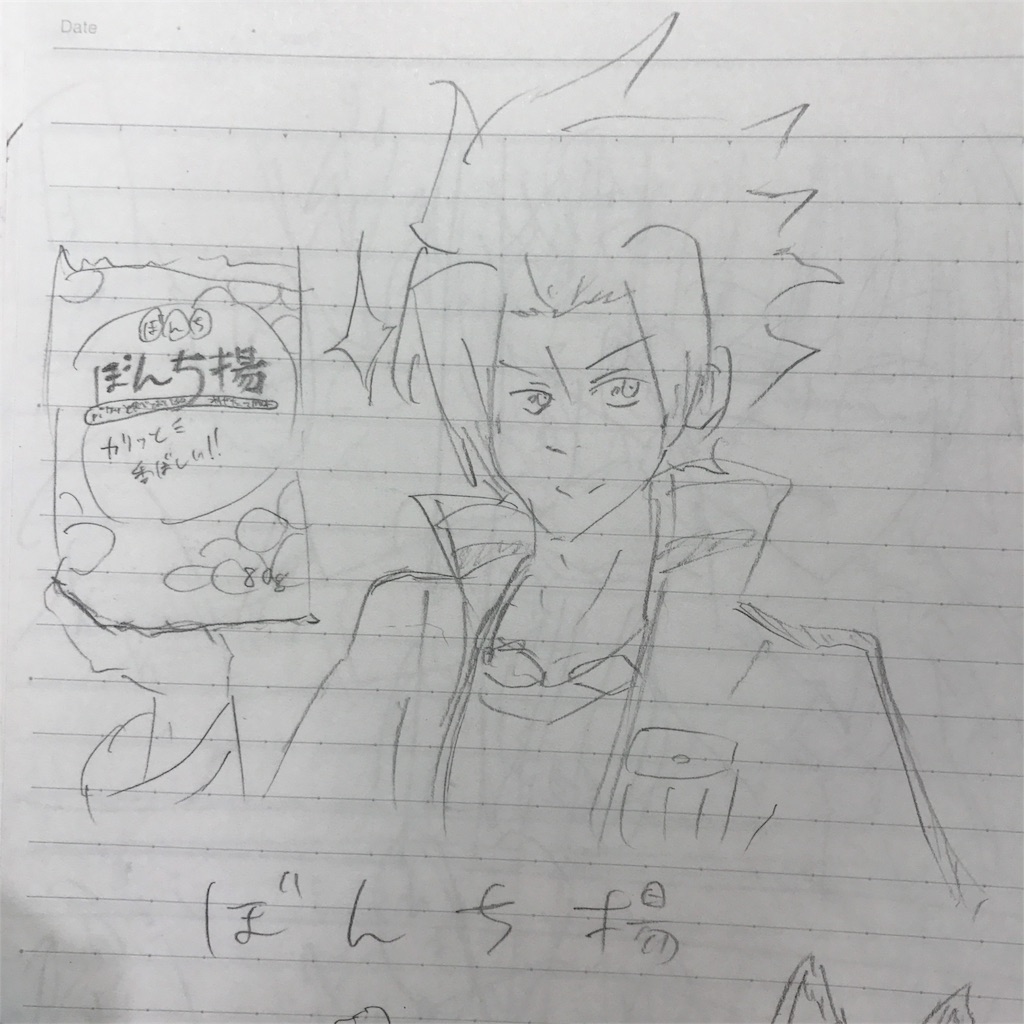 Date
ぼんち
ぼんち揚
カリっと
香ばしい!!
80g
ぼんち揚